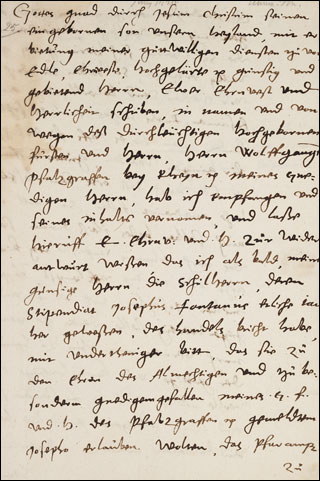 Gottes gnad durch Jesum Christum seinen
eingebornen son unsern heyland mit er
bietung meiner gutwilligen diensten zuvor
Edle, Ehrveste, hochgelerte gunstig und
gebietend Herrn, Ewer Ehrnvest und
Herrlichen schriben, in namen und von
wegen deß durchleichtigen hochgebornen
fürsten und Herrn, Herrn Wolffgangs
Pfaltzgraffen bey Rhein meines gne-
digen Herrn, hab ich empfangen und
seines inhalts vernomen, und lasse
hieruff E. Ehrnv. und H. zur wider
antwurt wissen das ich als bald mein
gunstige Herrn die Schulherrn, deren
Stipendiat Josephus Fontanus etliche iar
her gewessen, des handels bericht habe,
mit undertheniger bitt, das sie zu
den Ehren des Almechtigen und zu be-
sonderm gnedigem gefallen meines g. f.
und h. des Pfaltzgraffen gemeltem
Josepho erlauben wolten, das Pfarrampt
zu